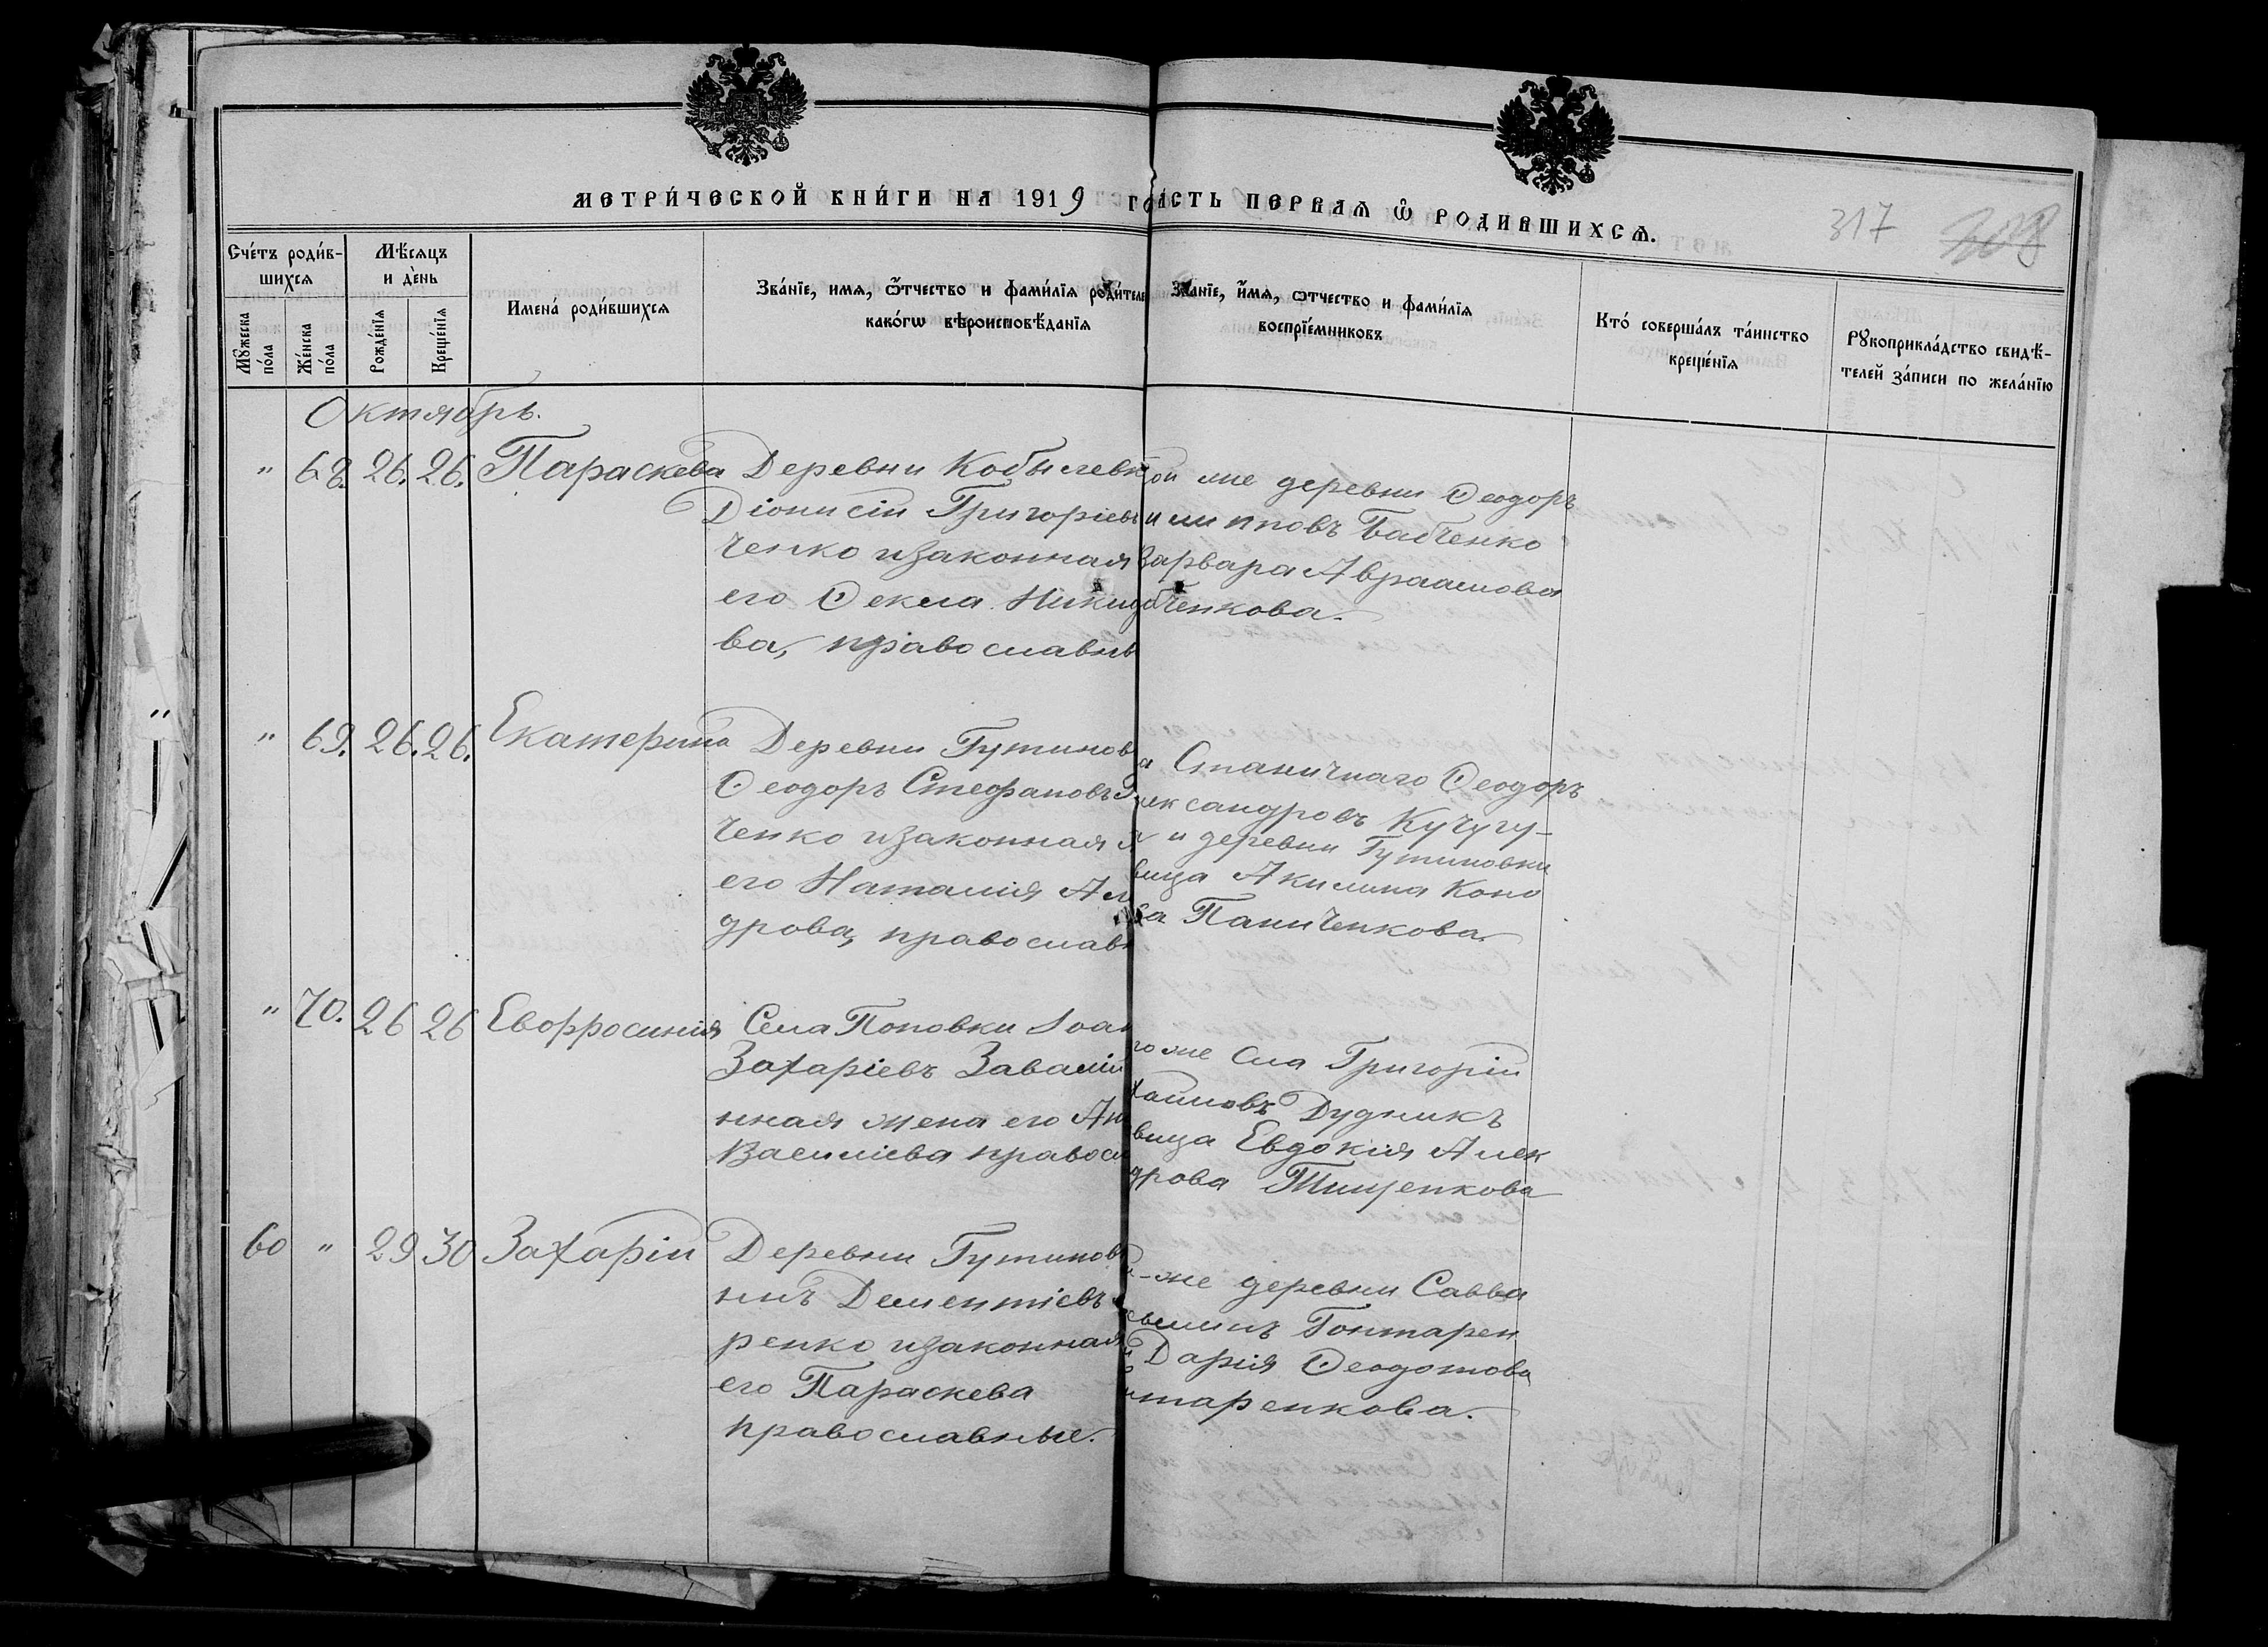 МЕТРИ́ЧЕСКОЙ КНИ́ГИ НА 1919 ГО
А́СТЬ ПЕРВАЯ Ѿ РОДИВШИХСЯ.
317
308
Сче́тъ роди́в-
шихся
Мꙋжеска по́ла
Же́нска по́ла
Мѣ́сяцъ
и де́нь
Рожде́нїя
Креще́нїя
Имена́ роди́вшихся
Зва́нїе, имя, ѻ҆́тчество и фами́лїя роди́теле
како́гѡ вѣроисповѣ́данїя
Зва́нїе, и҆́мя, ѻтчество и фами́лїя
воспрїе́мниковъ
Кто́ соверша́лъ та́инство
креще́нїя
Рꙋкоприкла́дство свидѣ́-
телей за́писи по жела́нїю
Октябрь.
" 68. 26. 26. Параскева
Деревни Кобылевк
Діонисій Григоріев
ченко и законная
его Ѳекла Никид
ва, православн
ой же деревни Ѳеодоръ
илипповъ Бабченко
Варвара Авраамова
бченкова.
" 69. 26. 26. Екатерина
Деревни Гутинов
Ѳеодоръ Стефановъ
ченко и законная
его Наталія Ал
дрова, православ
а Станичнаго Ѳеодоръ
лександровъ Кучугу-
и деревни Гутиновки
вица Акилина Коно
ва Паниченкова.
" 70. 26 26 Евфросинія
Села Поповки Іоан
Захаріевъ Завалій
нная жена его Ан
Василіева правосл
го же Села Григорій
хаиловъ Дудникъ
вица Евдокія Алек
дрова Тищенкова
60 " 29 30 Захарій
Деревни Гутинов
нъ Дементіевъ
ренко и законная
его Параскева
православные.
й-же деревни Савва
Гонтарен
Дарія Ѳеодотова
нтаренкова.